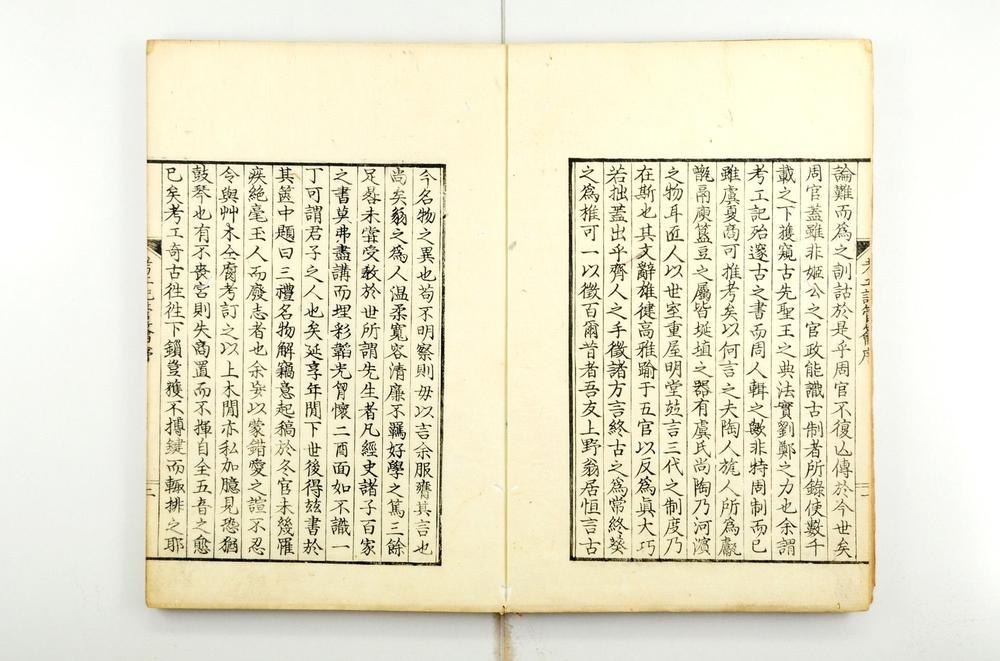 論難而爲之訓詁於是乎周官不復亾傳於今世矣
周官蓋雖非姬公之官政能識古制者所錄使數千
載之下獲窺古先聖王之典法實劉鄭之力也余謂
考工記殆邃古之書而周人輯之歟非特周制而已
雖虞夏商可推考矣以何言之夫陶人旊人所爲甗
甑鬲庾簋豆之屬皆埏埴之器有虞氏尚陶乃河濱
之物耳匠人以世室重屋明堂竝言三代之制度乃
在斯也其文辭雄健高雅踰于五官以反爲眞大巧
若拙蓋出乎齊人之手徵諸方言終古之爲常終葵
之爲椎可一以徵百爾昔者吾友上野翁居恒言古
今名物之異也苟不明察則毋以言余服膺其言也
尚矣翁之爲人温柔寬容清廉不羈好學之篤三餘
足畧未甞受敎於世所謂先生者凡經史諸子百家
之書莫弗盡講而埋彩韜光胷懷二酉面如不識一
丁可謂君子之人也矣延享年閒下世後得玆書於
其篋中題曰三禮名物解竊意起稿於冬官未幾罹
疾絶毫玉人而廢志者也余安以蒙錯愛之諠不忍
令與艸木仝腐考訂之以上木閒亦私加臆見恐猶
鼓琴也有不喪宮則失商置而不揮自全五音之愈
已矣考工奇古徃徃下鎖豈獲不搏鍵而輙排之耶